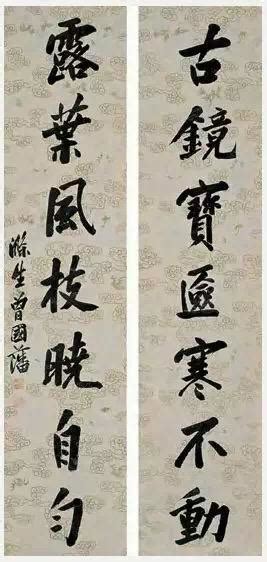 古鏡寶匳寒不動
露葉風枝曉自勻
滌生曾國藩